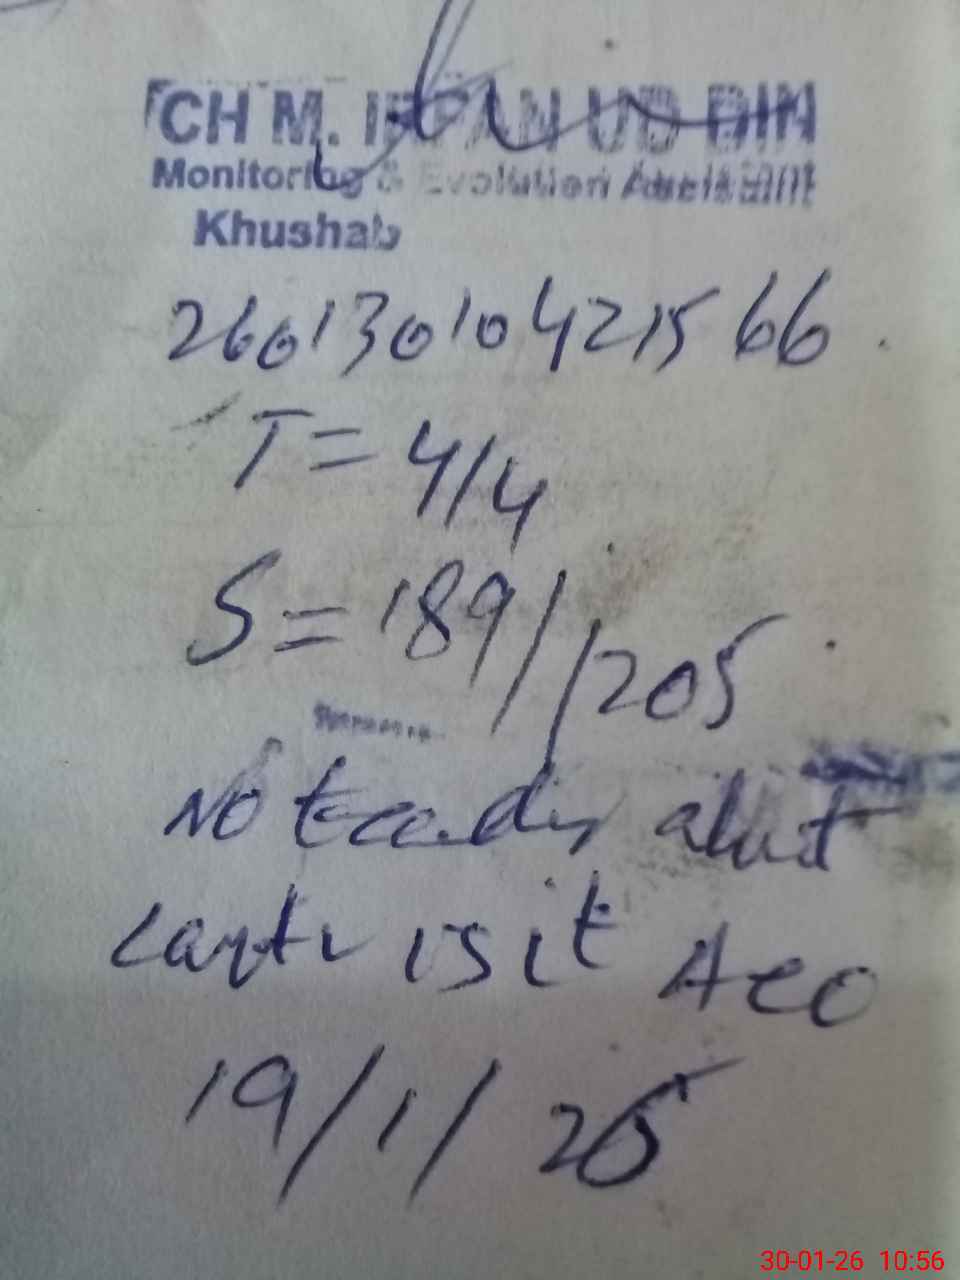 CH M. IRFAN UD DIN
Monitoring & Evolution Assistant
Khushab
26013010421566
T = 4/4
S = 189//205
No
Last visit AEO
19/1/26
30-01-26 10:56